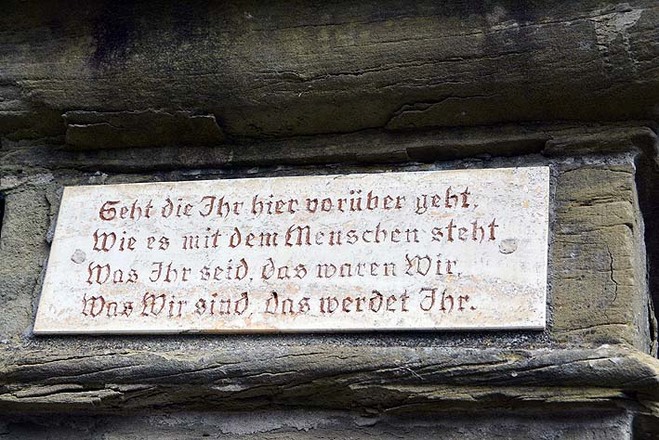 Seht die Ihr hier vorüber geht,
Wie es mit dem Menschen steht
Was Ihr seid, das waren Wir,
Was Wir sind, das werdet Ihr.